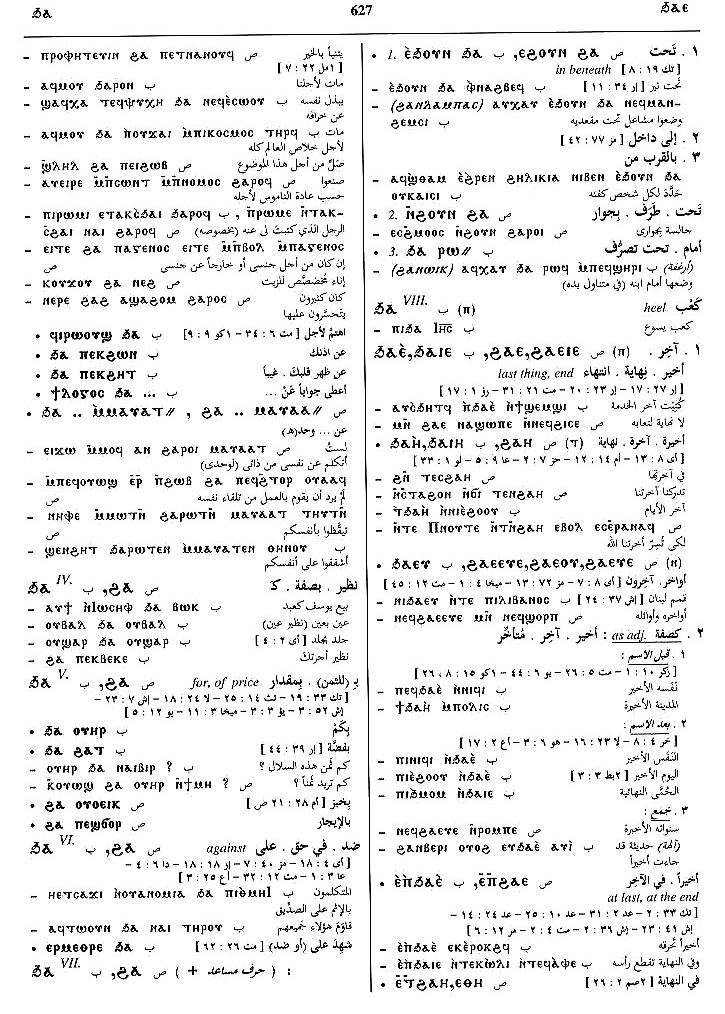 ϧⲁ 627 ϧⲁⲉ
– ⲡⲣⲟⲫⲏⲧⲉⲩⲓⲛ ϩⲁ ⲡⲉⲧⲛⲁⲛⲟⲩϥ ص يتنبأ بالخير
[١مل ٢٢ : ٧]
– ⲁϥⲙⲟⲩ ϧⲁⲣⲟⲛ ب مات لأجلنا
– ϣⲁϥⲭⲁ ⲧⲉϥⲯⲩⲭⲏ ϧⲁ ⲛⲉϥⲉ̀ⲥⲱⲟⲩ ب يبذل نفسه
عن خرافه
– ⲁϥⲙⲟⲩ ϧⲁ ⲡ̀ⲟⲩϫⲁⲓ ⲙ̀ⲡⲓⲕⲟⲥⲙⲟⲥ ⲧⲏⲣϥ ب مات
لأجل خلاص العالم كله
– ϣⲗⲏⲗ ϩⲁ ⲡⲉⲓϩⲱⲃ ص صَلِّ من أجل هذا الموضوع
– ⲁⲩⲉⲓⲣⲉ ⲙ̄ⲡⲥⲱⲛⲧ ⲙ̄ⲡⲛⲟⲙⲟⲥ ϩⲁⲣⲟϥ ص صنعوا
حسب عادة الناموس لأجله
– ⲡⲓⲣⲱⲙⲓ ⲉⲧⲁⲕⲥ̀ϧⲁⲓ ϧⲁⲣⲟϥ ب , ⲡⲣⲱⲙⲉ ⲛ̄ⲧⲁⲕ-
ⲥϩⲁⲓ ⲛⲁⲓ ϩⲁⲣⲟϥ ص الرجل الذي كتبتَ لى عنه (بخصوصه)
– ⲉⲓⲧⲉ ϩⲁ ⲡⲁⲅⲉⲛⲟⲥ ⲉⲓⲧⲉ ⲙ̄ⲡⲃⲟⲗ ⲙ̄ⲡⲁⲅⲉⲛⲟⲥ
ص إن كان من أجل جنسى أو خارجاً عن جنسى
– ⲕⲟⲩϫⲟⲩ ϩⲁ ⲛⲉϩ ص إناء مُخصَّص للزيت
– ⲛⲉⲣⲉ ϩⲁϩ ⲁϣⲁϩⲟⲙ ϩⲁⲣⲟⲥ ص كان كثيرون
يتحسَّرون عليها
• ϥⲓⲣⲱⲟⲩϣ ϧⲁ ب اهتمَّ لأجل [مت ٦ : ٣٤ – ١كو ٩ : ٩]
• ϧⲁ ⲡⲉⲕϩⲱⲛ ب عن اذنك
• ϧⲁ ⲡⲉⲕϩⲏⲧ ب عن ظهر قلبك . غيباً
• ϯⲗⲟⲅⲟⲥ ϧⲁ ... ب أعطى جواباً عَنْ ...
• ϧⲁ .. ⲙ̀ⲙⲁⲩⲁⲧ// , ϩⲁ .. ⲙⲁⲩⲁⲁ// ص
عن ... وحد(هـ)
– ⲉⲓϫⲱ ⲙ̄ⲙⲟϥ ⲁⲛ ϩⲁⲣⲟⲓ ⲙⲁⲩⲁⲁⲧ ص لستُ
أتكلم عن نفسى من ذاتى (لوحدى)
– ⲙ̄ⲡⲉϥⲟⲩⲱϣ ⲉⲣ̄ ⲡϩⲱⲃ ϩⲁ ⲡⲉϥϩⲧⲟⲣ ⲟⲩⲁⲁϥ
ص لَمْ يرد أن يقوم بالعمل من تلقاء نفسه
– ⲛⲏⲫⲉ ⲙ̄ⲙⲱⲧⲛ̄ ϩⲁⲣⲱⲧⲛ̄ ⲙⲁⲩⲁⲁⲧ ⲧⲏⲩⲧⲛ̄
ص تيقَّظوا بأنفسكم
– ϣⲉⲛϩⲏⲧ ϧⲁⲣⲱⲧⲉⲛ ⲙ̀ⲙⲁⲩⲁⲧⲉⲛ ⲑⲏⲛⲟⲩ ب
أشفقوا على أنفسكم
ϧⲁ IV. ب , ϩⲁ ص نظير . بصفة . كـ
– ⲁⲩϯ ⲛ̀ⲓⲱⲥⲏⲫ ϧⲁ ⲃⲱⲕ ب بيع يوسف كعبد
– ⲟⲩⲃⲁⲗ ϧⲁ ⲟⲩⲃⲁⲗ ب عين بعين (نظير عين)
– ⲟⲩϣⲁⲣ ϧⲁ ⲟⲩϣⲁⲣ ب جلد بجلد [أى ٢ : ٤]
– ϩⲁ ⲡⲉⲕⲃⲉⲕⲉ ب نظير أجرتك
ϧⲁ V. ب , ϩⲁ ص for, of price بـ (للثمن) . بمقدار
[تك ٣٣ : ١٩ – تث ١٤ : ٢٥ – لا ٢٤ : ١٨ – إش ٧ : ٢٣ –
إش ٥٢ : ٣ – يؤ ٣ : ٣ – ميخا ٣ : ١١ – يو ١٢ : ٥]
• ϧⲁ ⲟⲩⲏⲣ ب بِكَمْ
• ϧⲁ ϩⲁⲧ ب بفضَّة [إر ٣٩ : ٤٤]
– ⲟⲩⲏⲣ ϧⲁ ⲛⲁⲓⲃⲓⲣ ? ب كم ثمن هذه السلال ؟
– ⲕ̀ⲟⲩⲱϣ ϩⲁ ⲟⲩⲏⲣ ⲛ̀ϯⲙⲏ ? ص كم تريد ثمناً ؟
• ϩⲁ ⲟⲩⲟⲉⲓⲕ ص بخبز [أم ٢٨ : ٢١ ص]
• ϩⲁ ⲡⲉϣϭⲟⲣ ص بالإيجار
ϧⲁ VI. ب , ϩⲁ ص against ضد . في حق . على
[أى ٤ : ١٨ – مز ٤٠ : ٧ – إر ١٨ : ١٨ – دا ٦ : ٤ –
عا ٣ : ١ – مت ١٢ : ٣٢ – أع ٢٥ : ٣]
– ⲛⲉⲧⲥⲁϫⲓ ⲛ̀ⲟⲩⲁⲛⲟⲙⲓⲁ ϧⲁ ⲡⲓⲑ̀ⲙⲏⲓ ب المتكلمون
بالإثم على الصدِّيق
– ⲁϥⲧⲱⲟⲩⲛ ϧⲁ ⲛⲁⲓ ⲧⲏⲣⲟⲩ ب قاوَمَ هؤلاء جميعهم
• ⲉⲣⲙⲉⲑⲣⲉ ϧⲁ ب شهِدَ على (أو ضد) [مت ٢٦ : ٦٢]
ϧⲁ VII. ب , ϩⲁ ص ( + حرف مساعد ) :
• 1. ⲉ̀ϧⲟⲩⲛ ϧⲁ ب , ⲉϩⲟⲩⲛ ϩⲁ ص ١ . تَحت
[تك ١٩ : ٨] in beneath
– ⲉ̀ϧⲟⲩⲛ ϧⲁ ⲫ̀ⲛⲁϩⲃⲉϥ ب تحت نير [إر ٣٤ : ١١]
– (ϩⲁⲛⲗⲁⲙⲡⲁⲥ) ⲁⲩⲭⲁⲩ ⲉ̀ϧⲟⲩⲛ ϧⲁ ⲛⲉϥⲙⲁⲛ-
ϩⲉⲙⲥⲓ ب وضعوا مشاعل تحت مقعديه
٢ . إلى داخل [مز ٧٧ : ٤٢]
٣ . بالقرب من
– ⲁϥϣⲑⲁⲙ ⲉ̀ϩⲣⲉⲛ ϩⲏⲗⲓⲕⲓⲁ ⲛⲓⲃⲉⲛ ⲉ̀ϧⲟⲩⲛ ϧⲁ
ⲟⲩⲕⲁⲓⲥⲓ ب حَدَّدَ لكل شخص كفنه
• 2. ⲛ̄ϩⲟⲩⲛ ϩⲁ ص تَحت . طَرَف . بِجوار
– ⲉⲥϩⲙⲟⲟⲥ ⲛ̄ϩⲟⲩⲛ ϩⲁⲣⲟⲓ ص جالسة بجوارى
• 3. ϧⲁ ⲣⲱ// ب أمام . تحت تصرُّف
– (ϩⲁⲛⲱⲓⲕ) ⲁϥⲭⲁⲩ ϧⲁ ⲣⲱϥ ⲙ̀ⲡⲉϥϣⲏⲣⲓ ب (أرغفة)
وضعها أمام ابنه (في متناول يده)
ϧⲁ VIII. (ⲡ) ب heel كَعْب
– ⲡⲓϧⲁ ⲓⲏⲥ ب كعب يسوع
ϧⲁⲉ̀,ϧⲁⲓⲉ ب , ϩⲁⲉ,ϩⲁⲉⲓⲉ ص (ⲡ) ١ . آخِر .
أخير . نهاية . انتهاء last thing, end
[إر ١٧ : ٢٧ – إر ٢٣ : ٢٠ – مت ٢١ : ٣١ – رؤ ١ : ١٧]
– ⲁⲩⲥ̀ϧⲏⲧϥ ⲛ̀ϧⲁⲉ̀ ⲛ̀ϯϣⲉⲙϣⲓ ب كُتِبَت آخر الخدمة
– ⲙⲛ̄ ϩⲁⲉ ⲛⲁϣⲱⲡⲉ ⲛ̄ⲛⲉϥϩⲓⲥⲉ ص لا نهاية لتعابه
• ϧⲁⲏ̀,ϧⲁⲓⲏ ب , ϩⲁⲏ ص (ⲧ) أخيرة . آخرة . نهاية
[أى ٨ : ١٣ – ام ١٤ : ١٢ – حز ٧ : ٢ – عا ٩ : ٥ – لو ١ : ٣٣]
– ϩⲛ̄ ⲧⲉⲥϩⲁⲏ ص في آخرتها
– ⲛ̄ⲥⲧⲁϩⲟⲛ ⲛ̄ϭⲓ ⲧⲉⲛϩⲁⲏ ص تدركنا آخرتنا
– ⲧ̀ϧⲁⲏ̀ ⲛⲛⲓⲉ̀ϩⲟⲟⲩ ب آخر الأيام
– ⲛ̄ⲧⲉ Ⲡⲛⲟⲩⲧⲉ ⲛ̄ⲧⲛ̄ϩⲁⲏ ⲉⲃⲟⲗ ⲉⲥⲉ̄ⲣⲁⲛⲁϥ ص
لكى تُسِرّ آخرتنا الله
• ϧⲁⲉⲩ ب , ϩⲁⲉⲉⲩⲉ,ϩⲁⲉⲟⲩ,ϩⲁⲉⲩⲉ ص (ⲛ)
أواخر . آخِرون [أى ٨ : ٧ – مز ٧٢ : ١٣ – ميخا ٤ : ١ – مت ١٢ : ٤٥]
– ⲛⲓϧⲁⲉⲩ ⲛ̀ⲧⲉ ⲡⲓⲗⲓⲃⲁⲛⲟⲥ ب قمم لبنان [إش ٣٧ : ٢٤]
– ⲛⲉϥϩⲁⲉⲉⲩⲉ ⲙⲛ̄ ⲛⲉϥϣⲟⲣⲡ ص أواخره وأوائله
٢ . كصفة as adj. : أخير . آخِر . مُتأخّر
١ . قبل الاسم :
[زكر ١٠ : ١ – مت ٥ : ٢٦ – يو ٦ : ٤٤ – ١كو ١٥ : ٨ ، ٢٦]
– ⲡⲉϥϧⲁⲉ̀ ⲛ̀ⲛⲓϥⲓ ب نفَسه الأخير
– ϯϧⲁⲏ̀ ⲙ̀ⲡⲟⲗⲓⲥ ب المدينة الأخيرة
٢ . بعد الاسم :
[خر ٤ : ٨ – لا ٢٣ : ١٦ – هو ٦ : ٣ – أع ٢ : ١٧]
– ⲡⲓⲛⲓϥⲓ ⲛ̀ϧⲁⲉ̀ ب النَفَس الأخير
– ⲡⲓⲉ̀ϩⲟⲟⲩ ⲛ̀ϧⲁⲉ̀ ب اليوم الأخير [٢بط ٣ : ٣]
– ⲡⲓϧⲙⲟⲙ ⲛ̀ϧⲁⲓⲉ ب الحُمَّى النهائية
٣ . جَمع :
– ⲛⲉϥϩⲁⲉⲩⲉ ⲛ̄ⲣⲟⲙⲡⲉ ص سنواته الأخيرة
– ϩⲁⲛⲃⲉⲣⲓ ⲟⲩⲟϩ ⲉⲩϧⲁⲉ̀ ⲁⲩⲓ̀ ب (آلهة) حديثة قد
جاءت أخيراً
• ⲉ̀ⲡ̀ϧⲁⲉ̀ ب , ⲉ̄ⲡ̄ϩⲁⲉ ص أخيراً . في الآخِر
at last, at the end
[تك ٣٣ : ٢ – عد ٢ : ٣١ – عد ١٠ : ٢٥ – عد ٢٤ : ١٤ –
إش ٤١ : ٢٣ – إش ٣٦ : ٢ – مت ٤ : ٢ – مر ١٢ : ٦]
– ⲉ̀ⲡ̀ϧⲁⲉ̀ ⲉⲕⲉ̀ⲣⲟⲕϩϥ ب أخيراً تحرقه
– ⲉ̀ⲡ̀ϧⲁⲓⲉ ⲛ̀ⲧⲉⲕⲱ̀ⲗⲓ ⲛ̀ⲧⲉϥⲁ̀ⲫⲉ ب وفي النهاية تقطع رأسه
• ⲉ̄ⲧϩⲁⲏ,ⲉⲑⲏ ص في النهاية [٢صم ٢ : ٢٦]